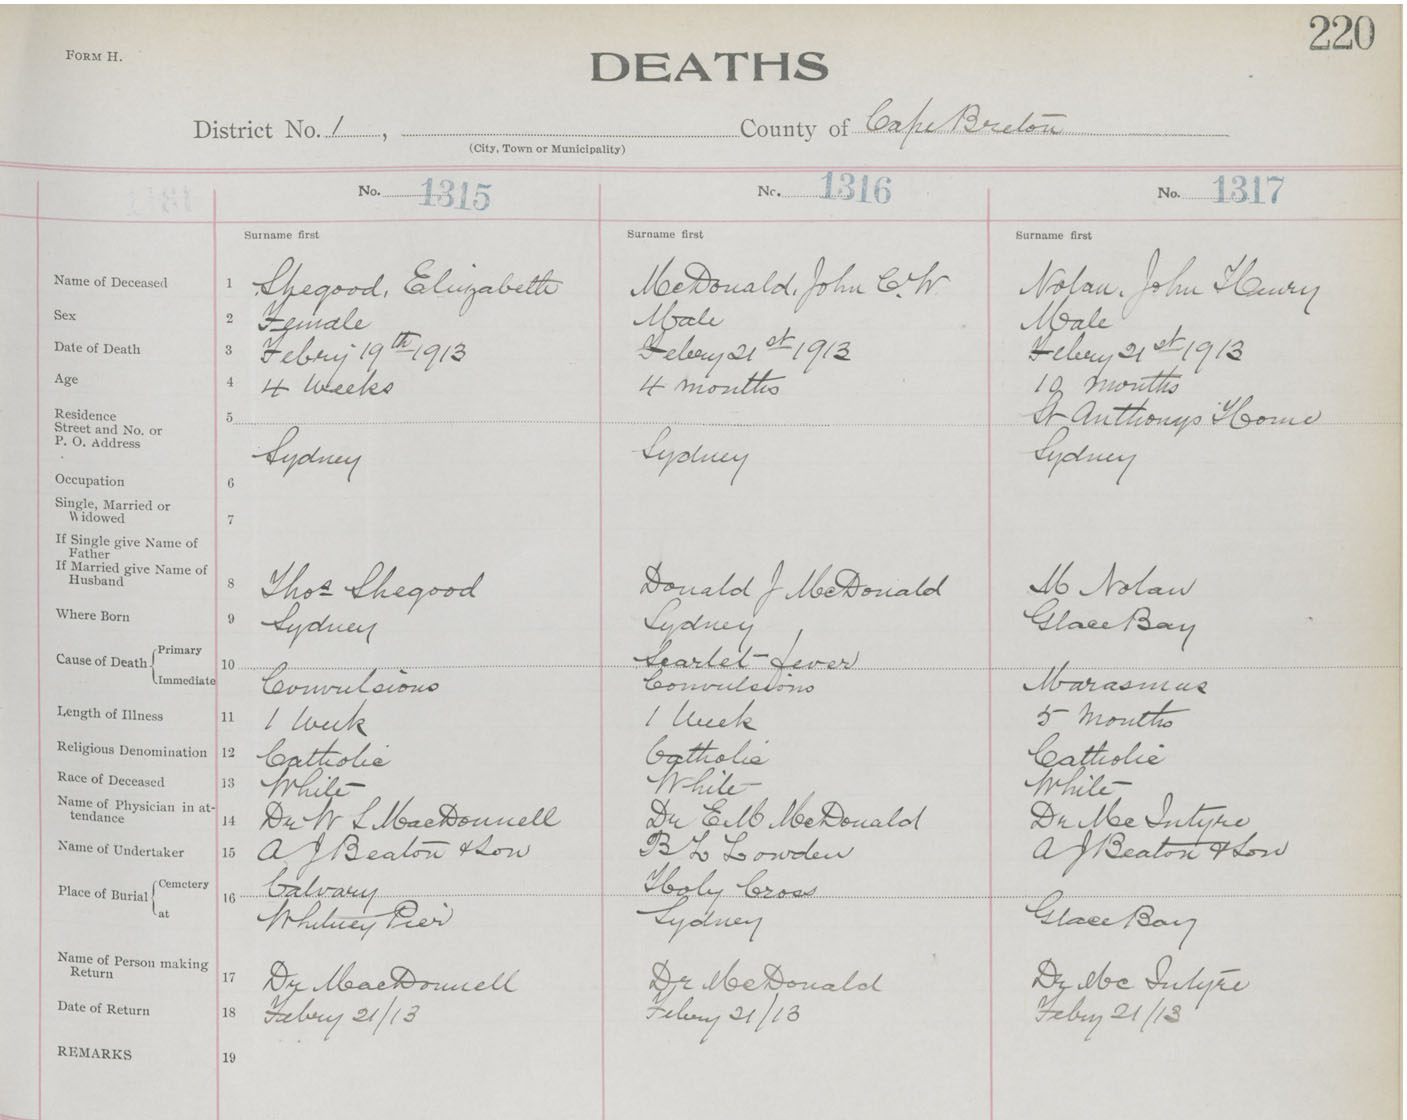 220
FORM H.
DEATHS
District No. 1, County of Cape Breton
(City, Town or Municipality)
No. 1315 No. 1316 No. 1317
Surname first Surname first Surname first
Name of Deceased 1 Shegood, Elizabeth McDonald, John C. W. Nolan, John Henry
Sex 2 Female Male Male
Date of Death 3 Febry 19th 1913 Febery 21st 1913 Febery 21st 1913
Age 4 4 Weeks 4 months 10 months
Residence 5 St Anthonys Home
Street and No. or
P. O. Address Sydney Sydney Sydney
Occupation 6
Single, Married or
Widowed 7
If Single give Name of
Father
If Married give Name of
Husband 8 Thos Shegood Donald J McDonald M Nolan
Where Born 9 Sydney Sydney Glace Bay
Cause of Death Primary 10 Scarlet fever
Immediate Convulsions Convulsions Marasmus
Length of Illness 11 1 Week 1 Week 5 Months
Religious Denomination 12 Catholic Catholic Catholic
Race of Deceased 13 White White White
Name of Physician in at-
tendance 14 Dr W L MacDonnell Dr E M McDonald Dr McIntyre
Name of Undertaker 15 A J Beaton & Son B L Lowden A J Beaton & Son
Place of Burial Cemetery 16 Calvary Holy Cross
at Whitney Pier Sydney Glace Bay
Name of Person making
Return 17 Dr MacDonnell Dr McDonald Dr McIntyre
Date of Return 18 Febry 21/13 Febry 21/13 Febry 21/13
REMARKS 19